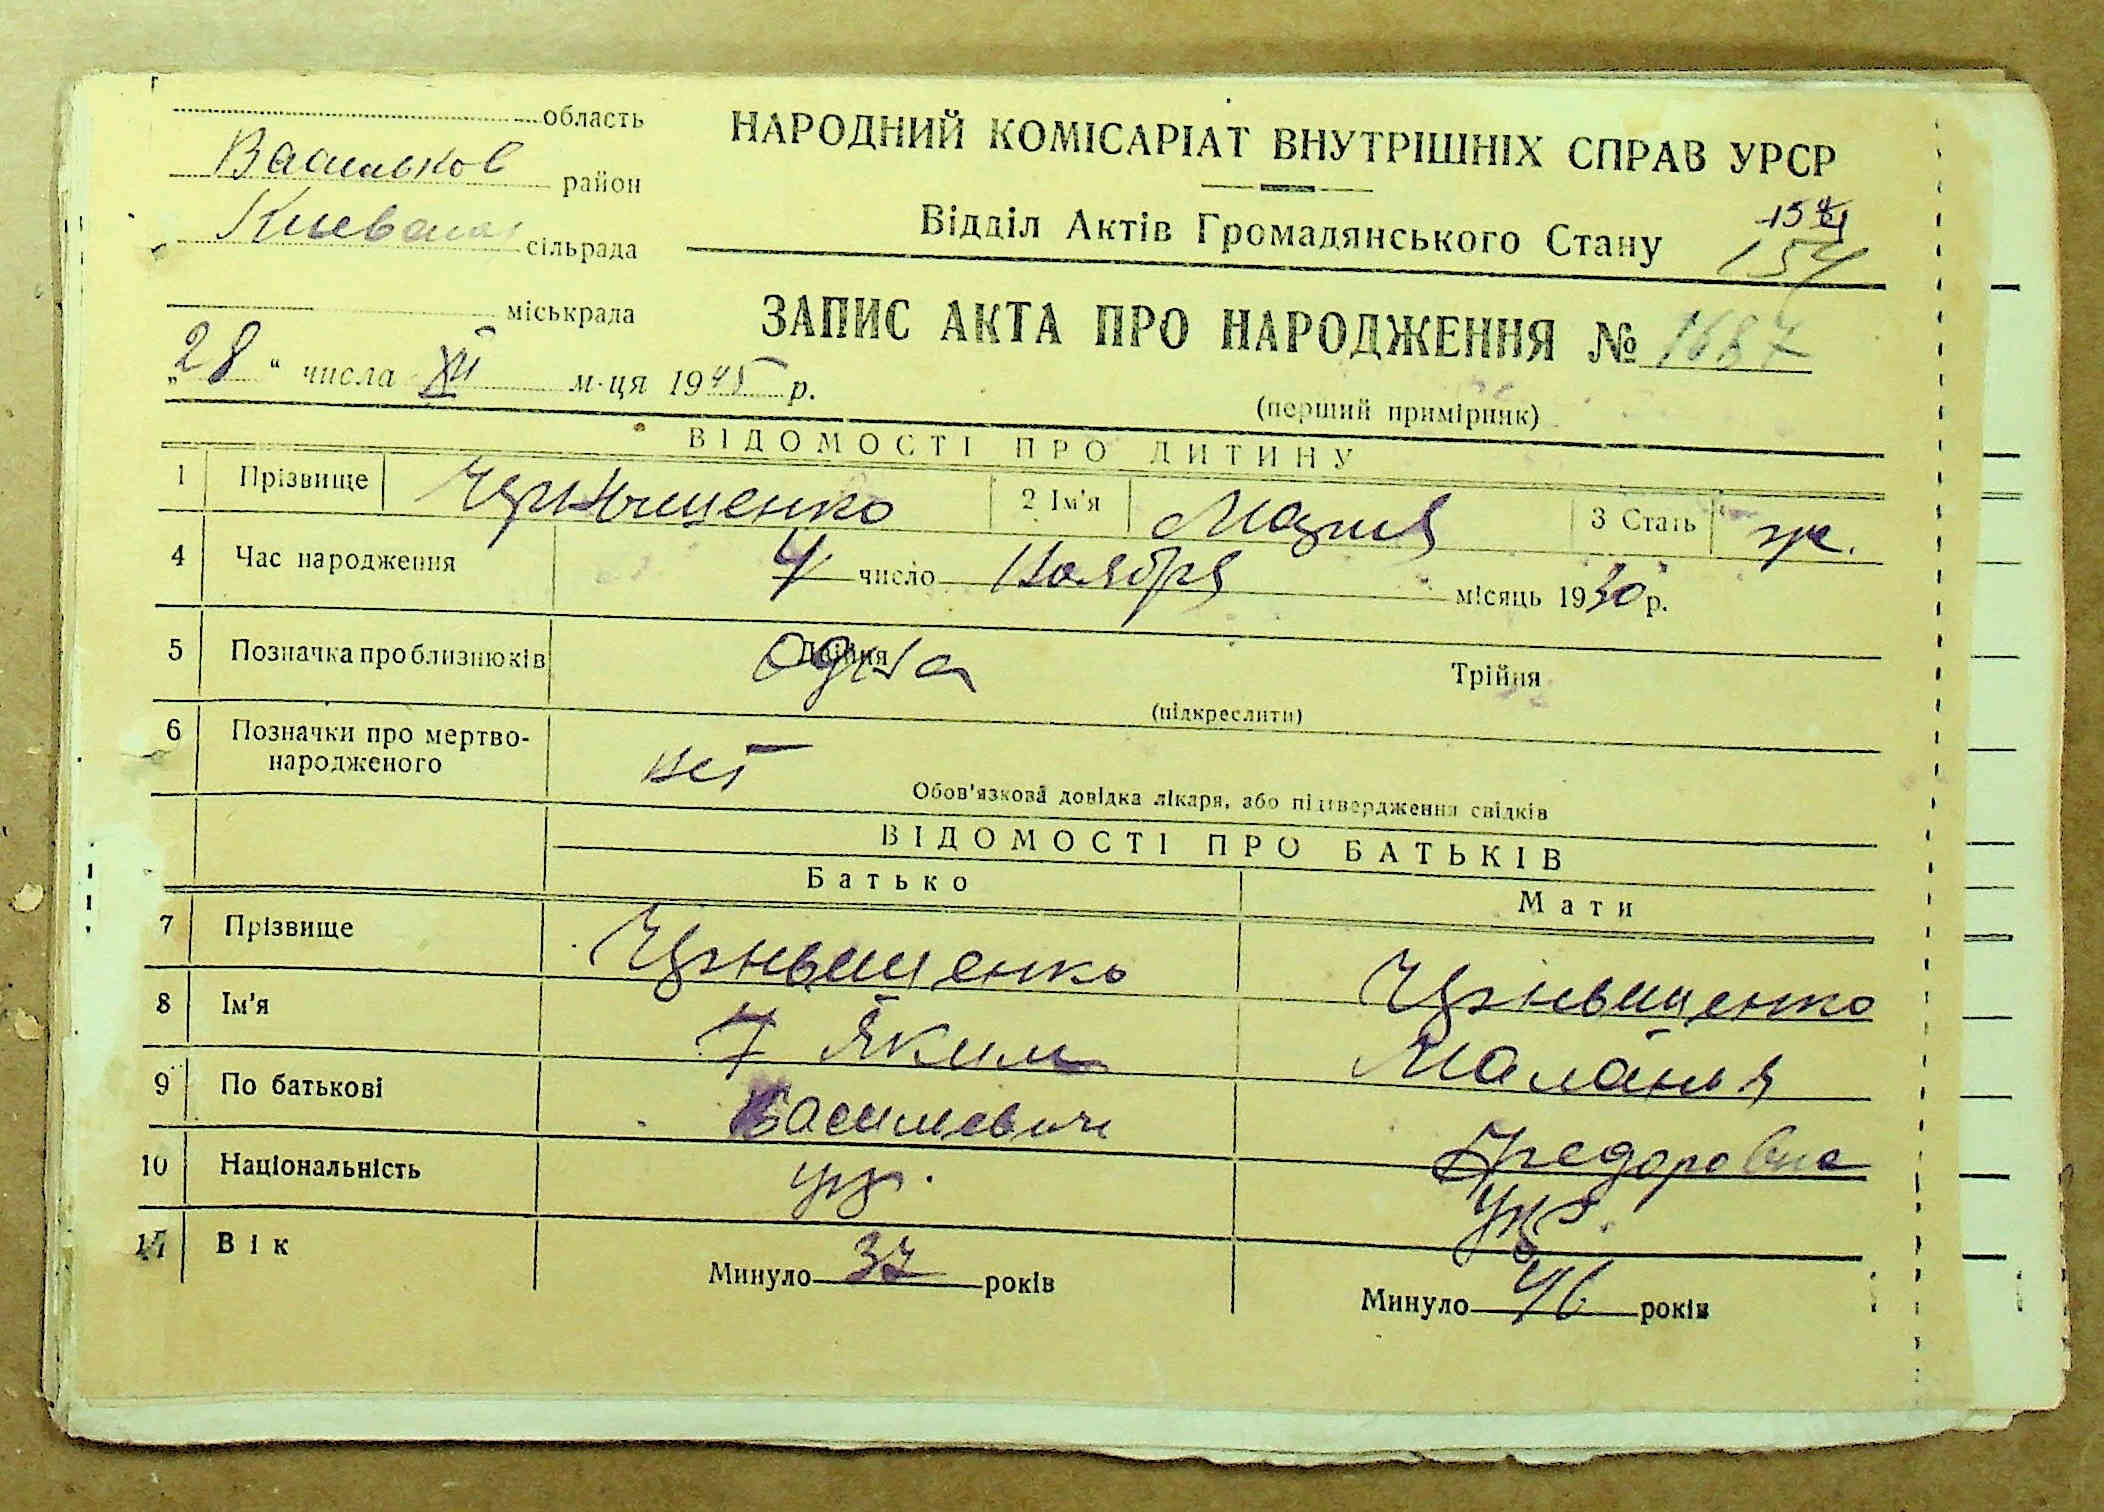 область
Васильков район
Киевская сільрада
міськрада
НАРОДНИЙ КОМІСАРІАТ ВНУТРІШНІХ СПРАВ УРСР
Відділ Актів Громадянського Стану
154
ЗАПИС АКТА ПРО НАРОДЖЕННЯ № 1687
„28“ числа XII м-ця 1945 р.
(перший примірник)
ВІДОМОСТІ ПРО ДИТИНУ
1 Прізвище Чернышенко 2 Ім'я Мария 3 Стать ж.
4 Час народження 4 число Ноября місяць 1930 р.
5 Позначка про близнюків Двійня одна Трійня
(підкреслити)
6 Позначки про мертво-
народженого нет
Обов'язкова довідка лікаря, або підтвердження свідків
ВІДОМОСТІ ПРО БАТЬКІВ
Батько Мати
7 Прізвище Чернышенко Чернышенко
8 Ім'я Яким Маланья
9 По батькові Василевич Федоровна
10 Національність укр. укр.
11 Вік Минуло 37 років Минуло 46 років